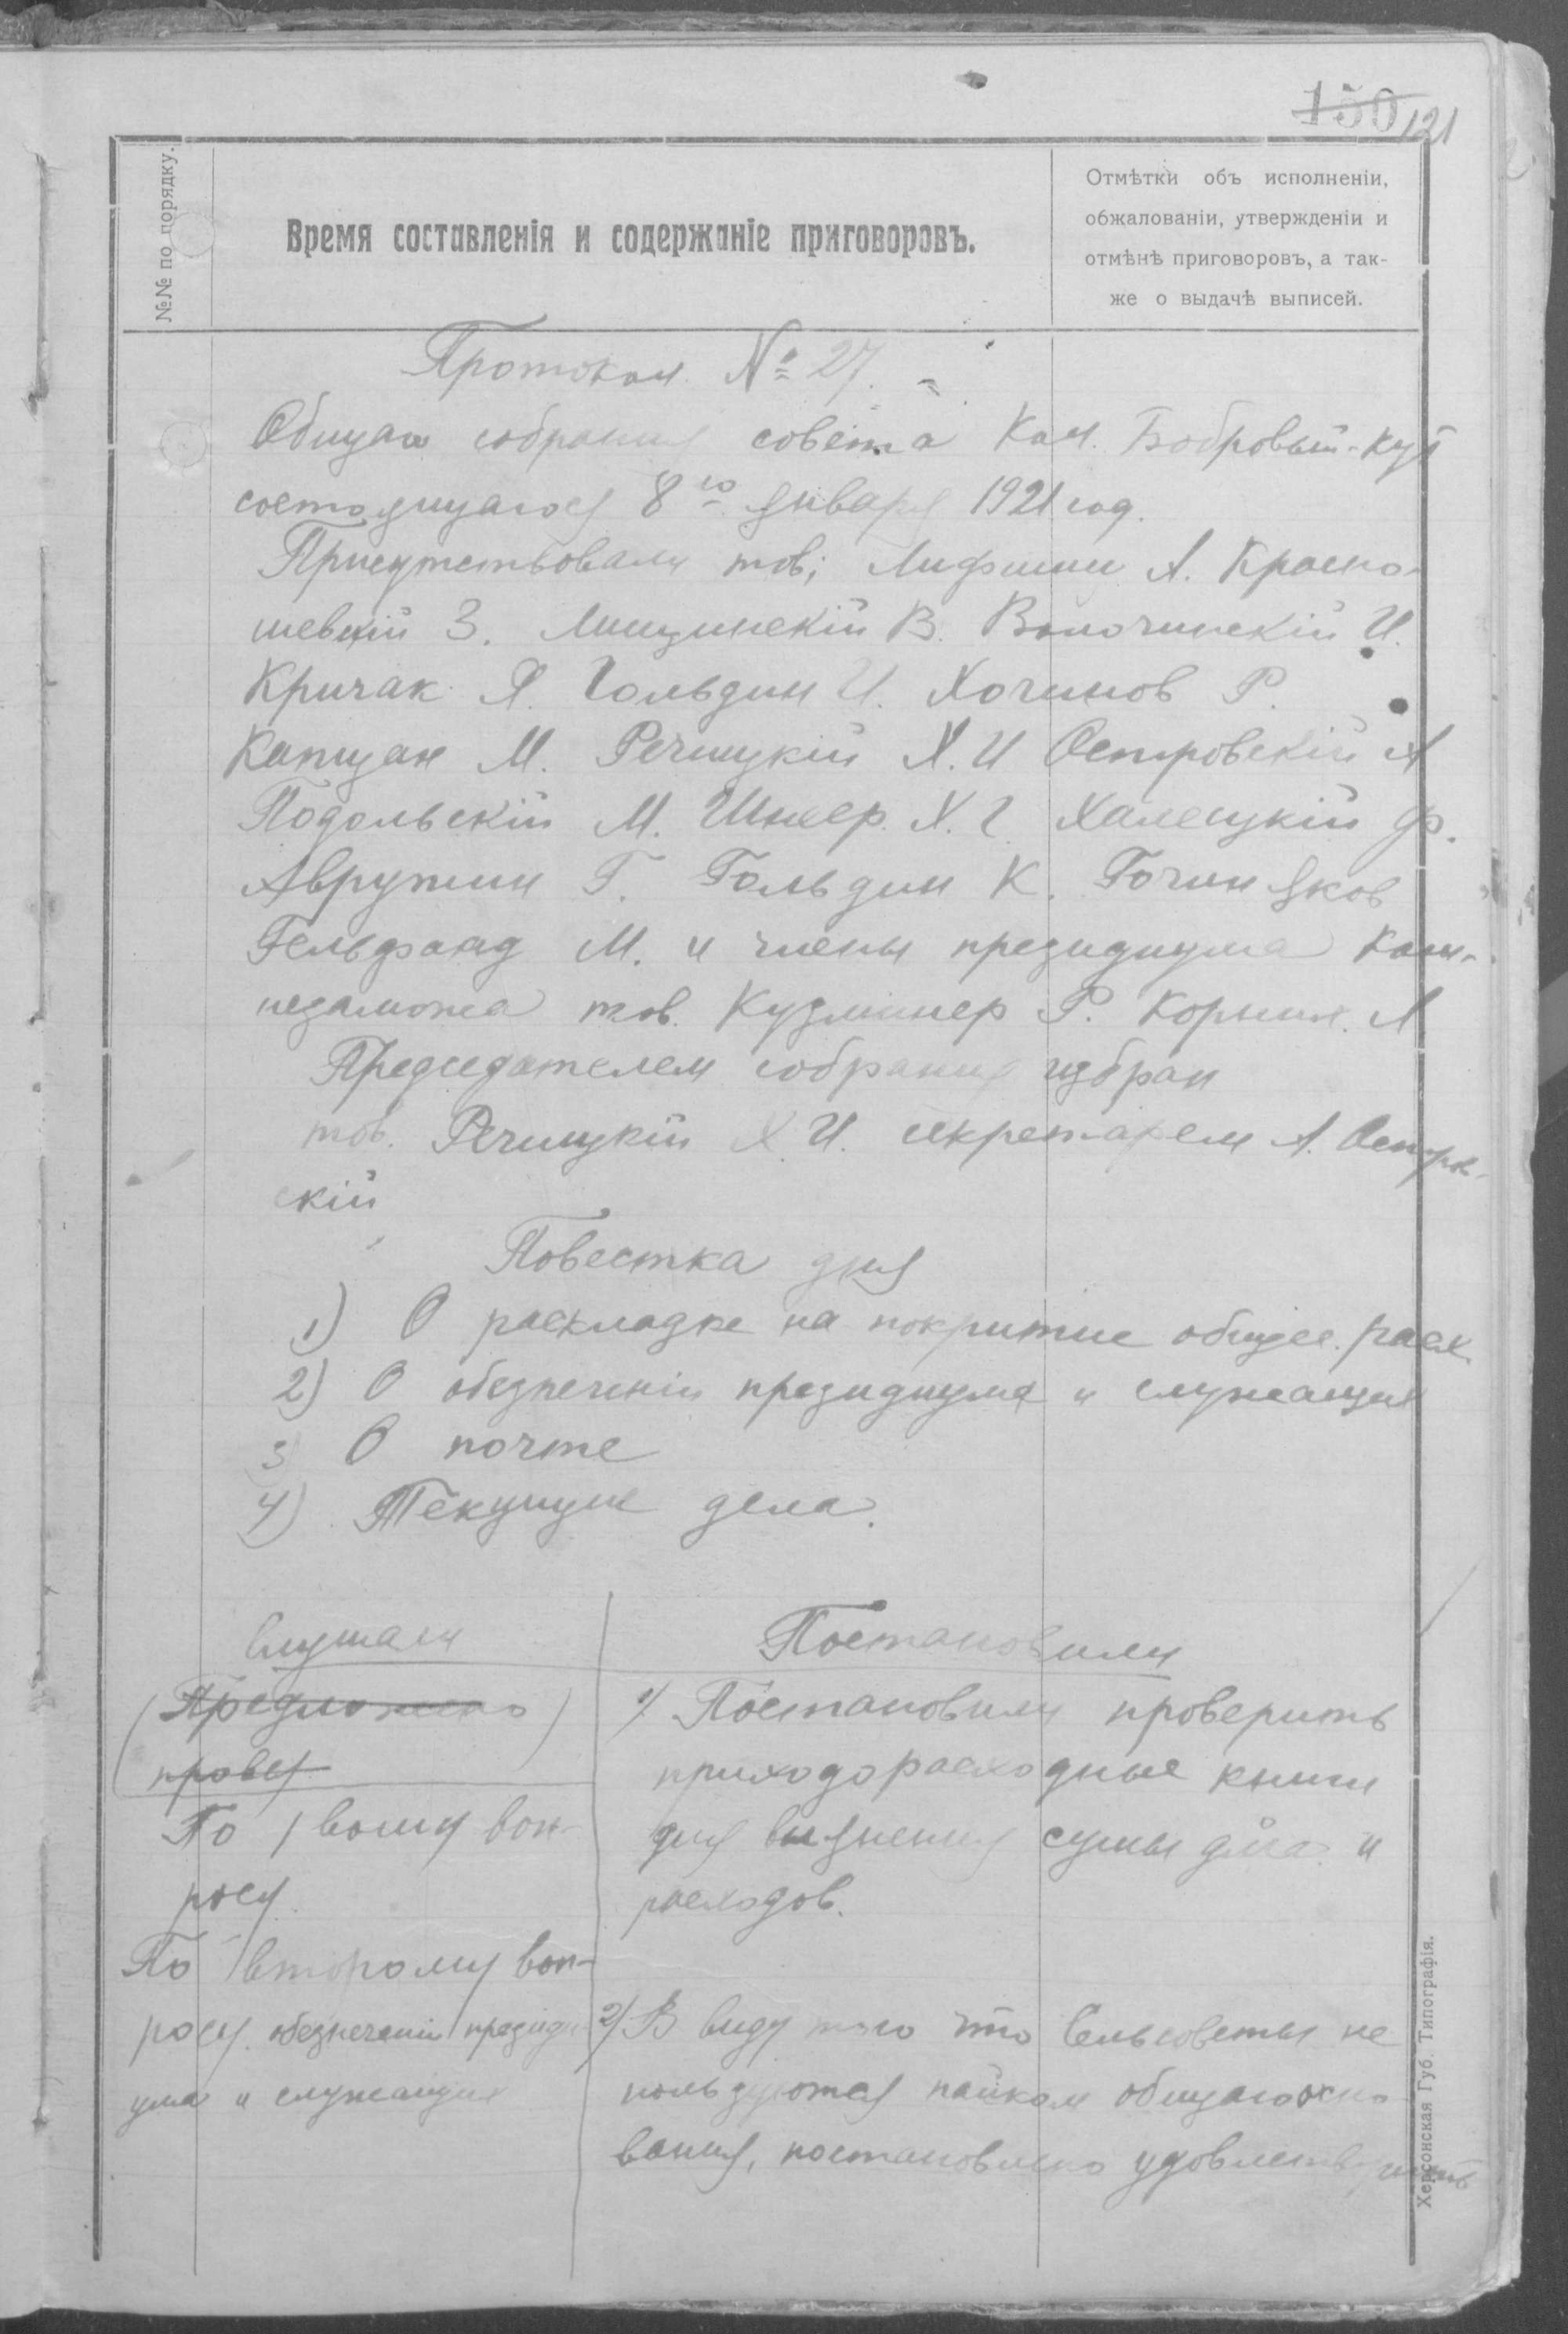 150 121
№№ по порядку.
Время составленія и содержаніе приговоровъ.
Отмѣтки объ исполненіи,
обжалованіи, утвержденіи и
отмѣнѣ приговоровъ, а так-
же о выдачѣ выписей.
Протокол № 27.
Общаго собрания совета Кол. Бобровый-Кут
состоящагося 8го января 1921 год.
Присутствовали тов; Лифшиц А. Красно-
шевский З. Лищинскій В. Волочинскій И.
Кричак Я. Гольдин И. Хочинов Р.
Капцан М. Речицкій Х. И Островскій А
Подольскій М. Шнеер. Х. Г. Халецкій Ф.
Аврутин Г. Гольдин К. Гочин Яков
Гельфанд М. и члены президиума Ком-
незаможа тов. Кузминер Р. Корник. Л
Председателем собрания избран
тов. Речицкій Х. И. секретарем А. Остров-
скій
Повестка дня
1) О раскладке на покритие общес. расх.
2) О обезпеченіи президиума и служащих
3 О почте
4) Текущие дела.
Слушали
Постановили
(Предложено)
провер
1) Постановили проверить
приходорасходные книги
для выяснения сумы дохода и
расходов.
По 1 вому воп-
росу
По второму воп-
росу. обезпеченіи президи-
ума и служащих
2) В виду того что Сельсоветы не
пользуются пайком общаго осно
вания, постановлено удовлетворить
Херсонская Губ. Типографія.